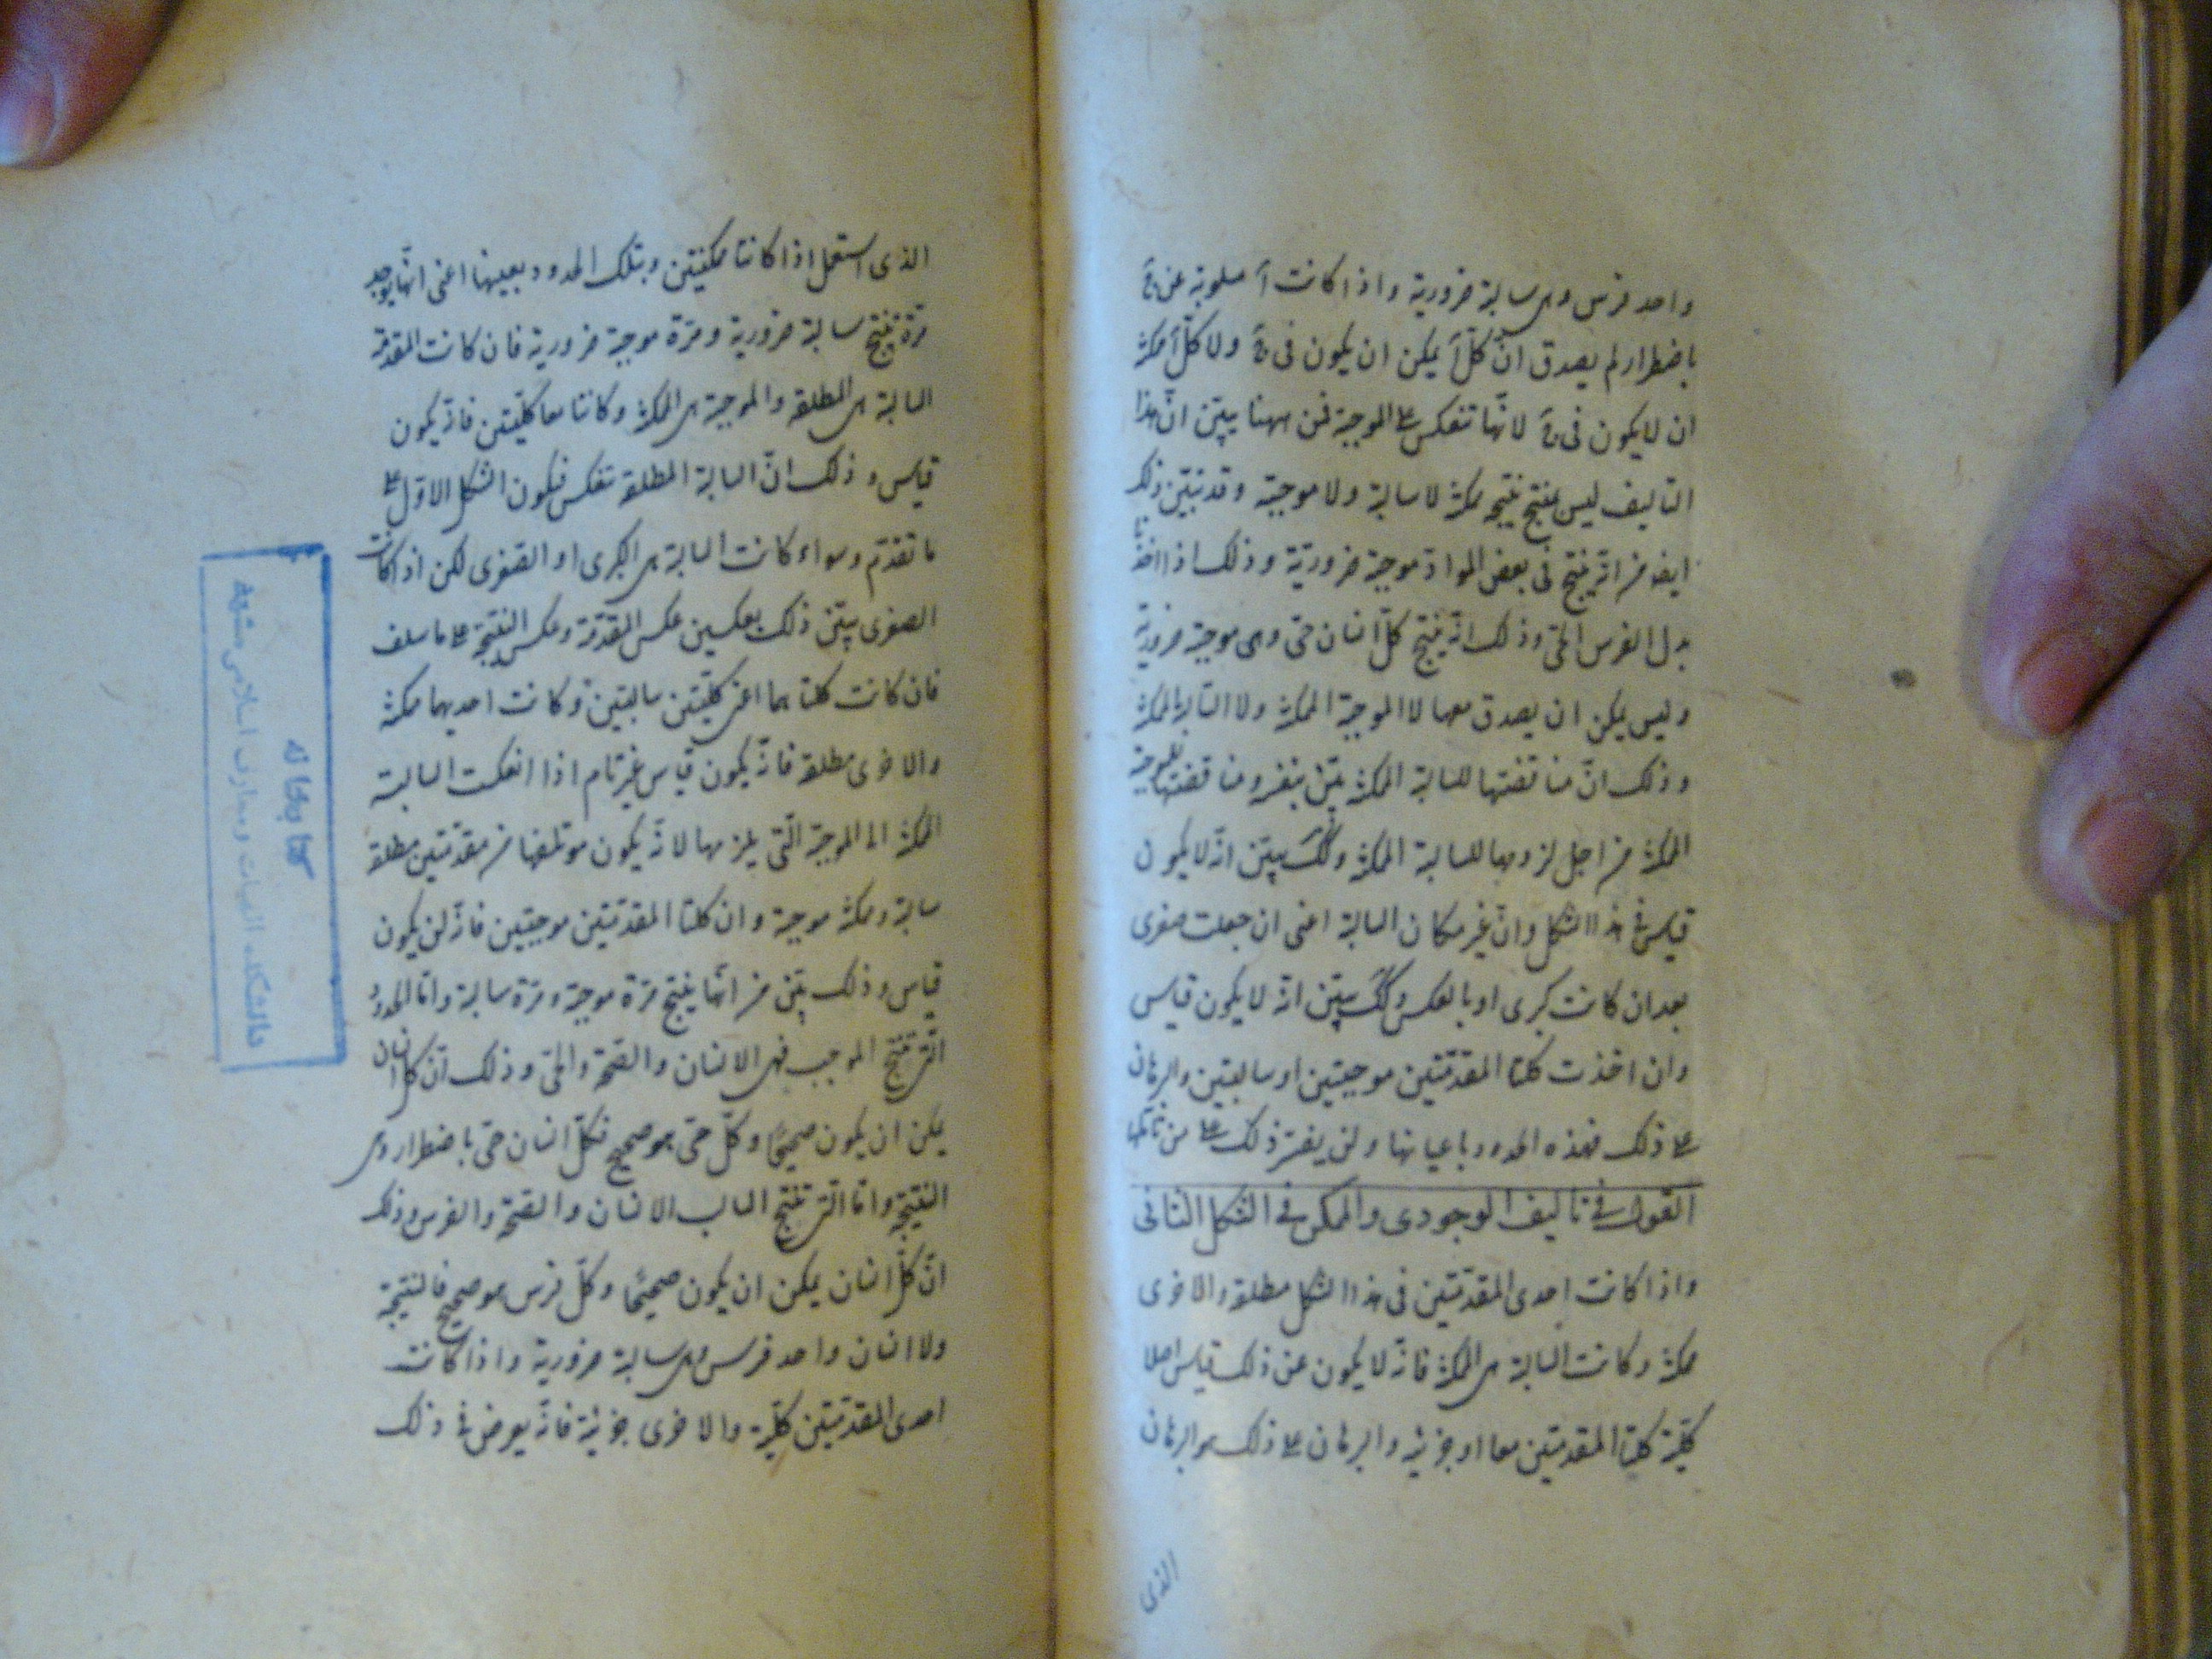 واحد فرس وهى سالبة ضرورية واذا كانت آ مسلوبة عن ج
باضطرار لم يصدق انّ كلّ آ يمكن ان يكون فى ج ولا كلّ آ ممكنة
ان لا يكون فى ج لانّها تنعكس ع الموجبة فمن ههنا يبيّن انّ هذا
التاليف ليس ينتج نتيجه ممكنة لا سالبة ولا موجبة وقد تبيّن ذلك
ايض من انّه ينتج فى بعض الموادّ موجبة ضروريّة وذلك اذا اخذنا
بدل الفرس الحىّ وذلك انّه ينتج كلّ انسان حىّ وهى موجبة ضرورية
وليس يمكن ان يصدق معها لا الموجبة الممكنة ولا السّالبة الممكنة
وذلك انّ مناقضتها للسالبة الممكنة بيّن بنفسه ومناقضتها للموجبة
الممكنة من اجل لزومها للسالبة الممكنة وكك يبيّن انّه لا يكون
قياس فى هذا الشكل وان غيّر مكان السالبة اعنى ان جعلت صغرى
بعد ان كانت كبرى او بالعكس وكك يبيّن انّه لا يكون قياس
وان اخذت كلتا المقدّمتين موجبتين او سالبتين والبرهان
ع ذلك فهذه الحدود باعيانها ولن يعسر ذلك ع من تاملها
القول فى تاليف الوجودى والممكن فى الشكل الثانى
واذا كانت احدى المقدّمتين فى هذا الشكل مطلقة والاخرى
ممكنة وكانت السالبة هى الممكنة فانّه لا يكون عن ذلك قياس اصلا
كليّة كلتا المقدمتين معا او جزئية والبرهان ع ذلك هو البرهان
الذى
الذى استعمل اذا كانتا ممكنتين وبتلك الحدود بعينها اعنى انّها يوجد
مرّة تنتج سالبة ضرورية ومرّة موجبة ضرورية فان كانت المقدمة
السالبة هى المطلقة والموجبة هى الممكنة وكانتا معا كليّتين فانّه يكون
قياس وذلك انّ السالبة المطلقة تنعكس فيكون الشكل الاوّل ع
ما تقدّم وسواء كانت السالبة هى الكبرى او الصغرى لكن اذا كانت
الصغرى يبيّن ذلك بعكسين عكس المقدّمة وعكس النتيجة ع ما سلف
فان كانت كلتاهما اعنى كليّتين سالبتين وكانت احديهما ممكنة
والاخرى مطلقة فانّه يكون قياس غير تام اذا انعكست السالبة
الممكنة الى الموجبة الّتى يلزمها لانّه يكون موتلفها من مقدّمتين مطلقة
سالبة وممكنة موجبة وان كلتا المقدّمتين موجبتين فانّه لن يكون
قياس وذلك بيّن من انّها ينتج مرّة موجبة ومرّة سالبة وامّا الحدود
الّتى تنتج الموجب فهى الانسان والصّحة والحىّ وذلك انّ كلّ انسان
يمكن ان يكون صحيحًا وكلّ حىّ هو صحيح فكلّ انسان حىّ باضطرار وهى
النتيجة وامّا الّتى تنتج السالب الانسان والصّحة والفرس وذلك
انّ كلّ انسان يمكن ان يكون صحيحًا وكلّ فرس هو صحيح فالنتيجة
ولا انسان واحد فرس وهى سالبة ضرورية واذا كانت
احدى المقدمتين كليّة والاخرى جزئية فانّه يعرض فى ذلك
كتابخانه
دانشكده الهيات ومعارف اسلامى مشهد